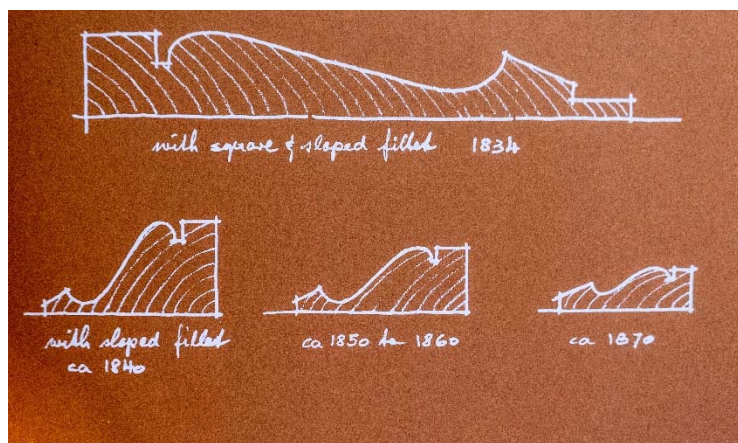 with square & sloped fillet 1834
with sloped fillet
ca 1840
ca 1850 to 1860
ca 1870